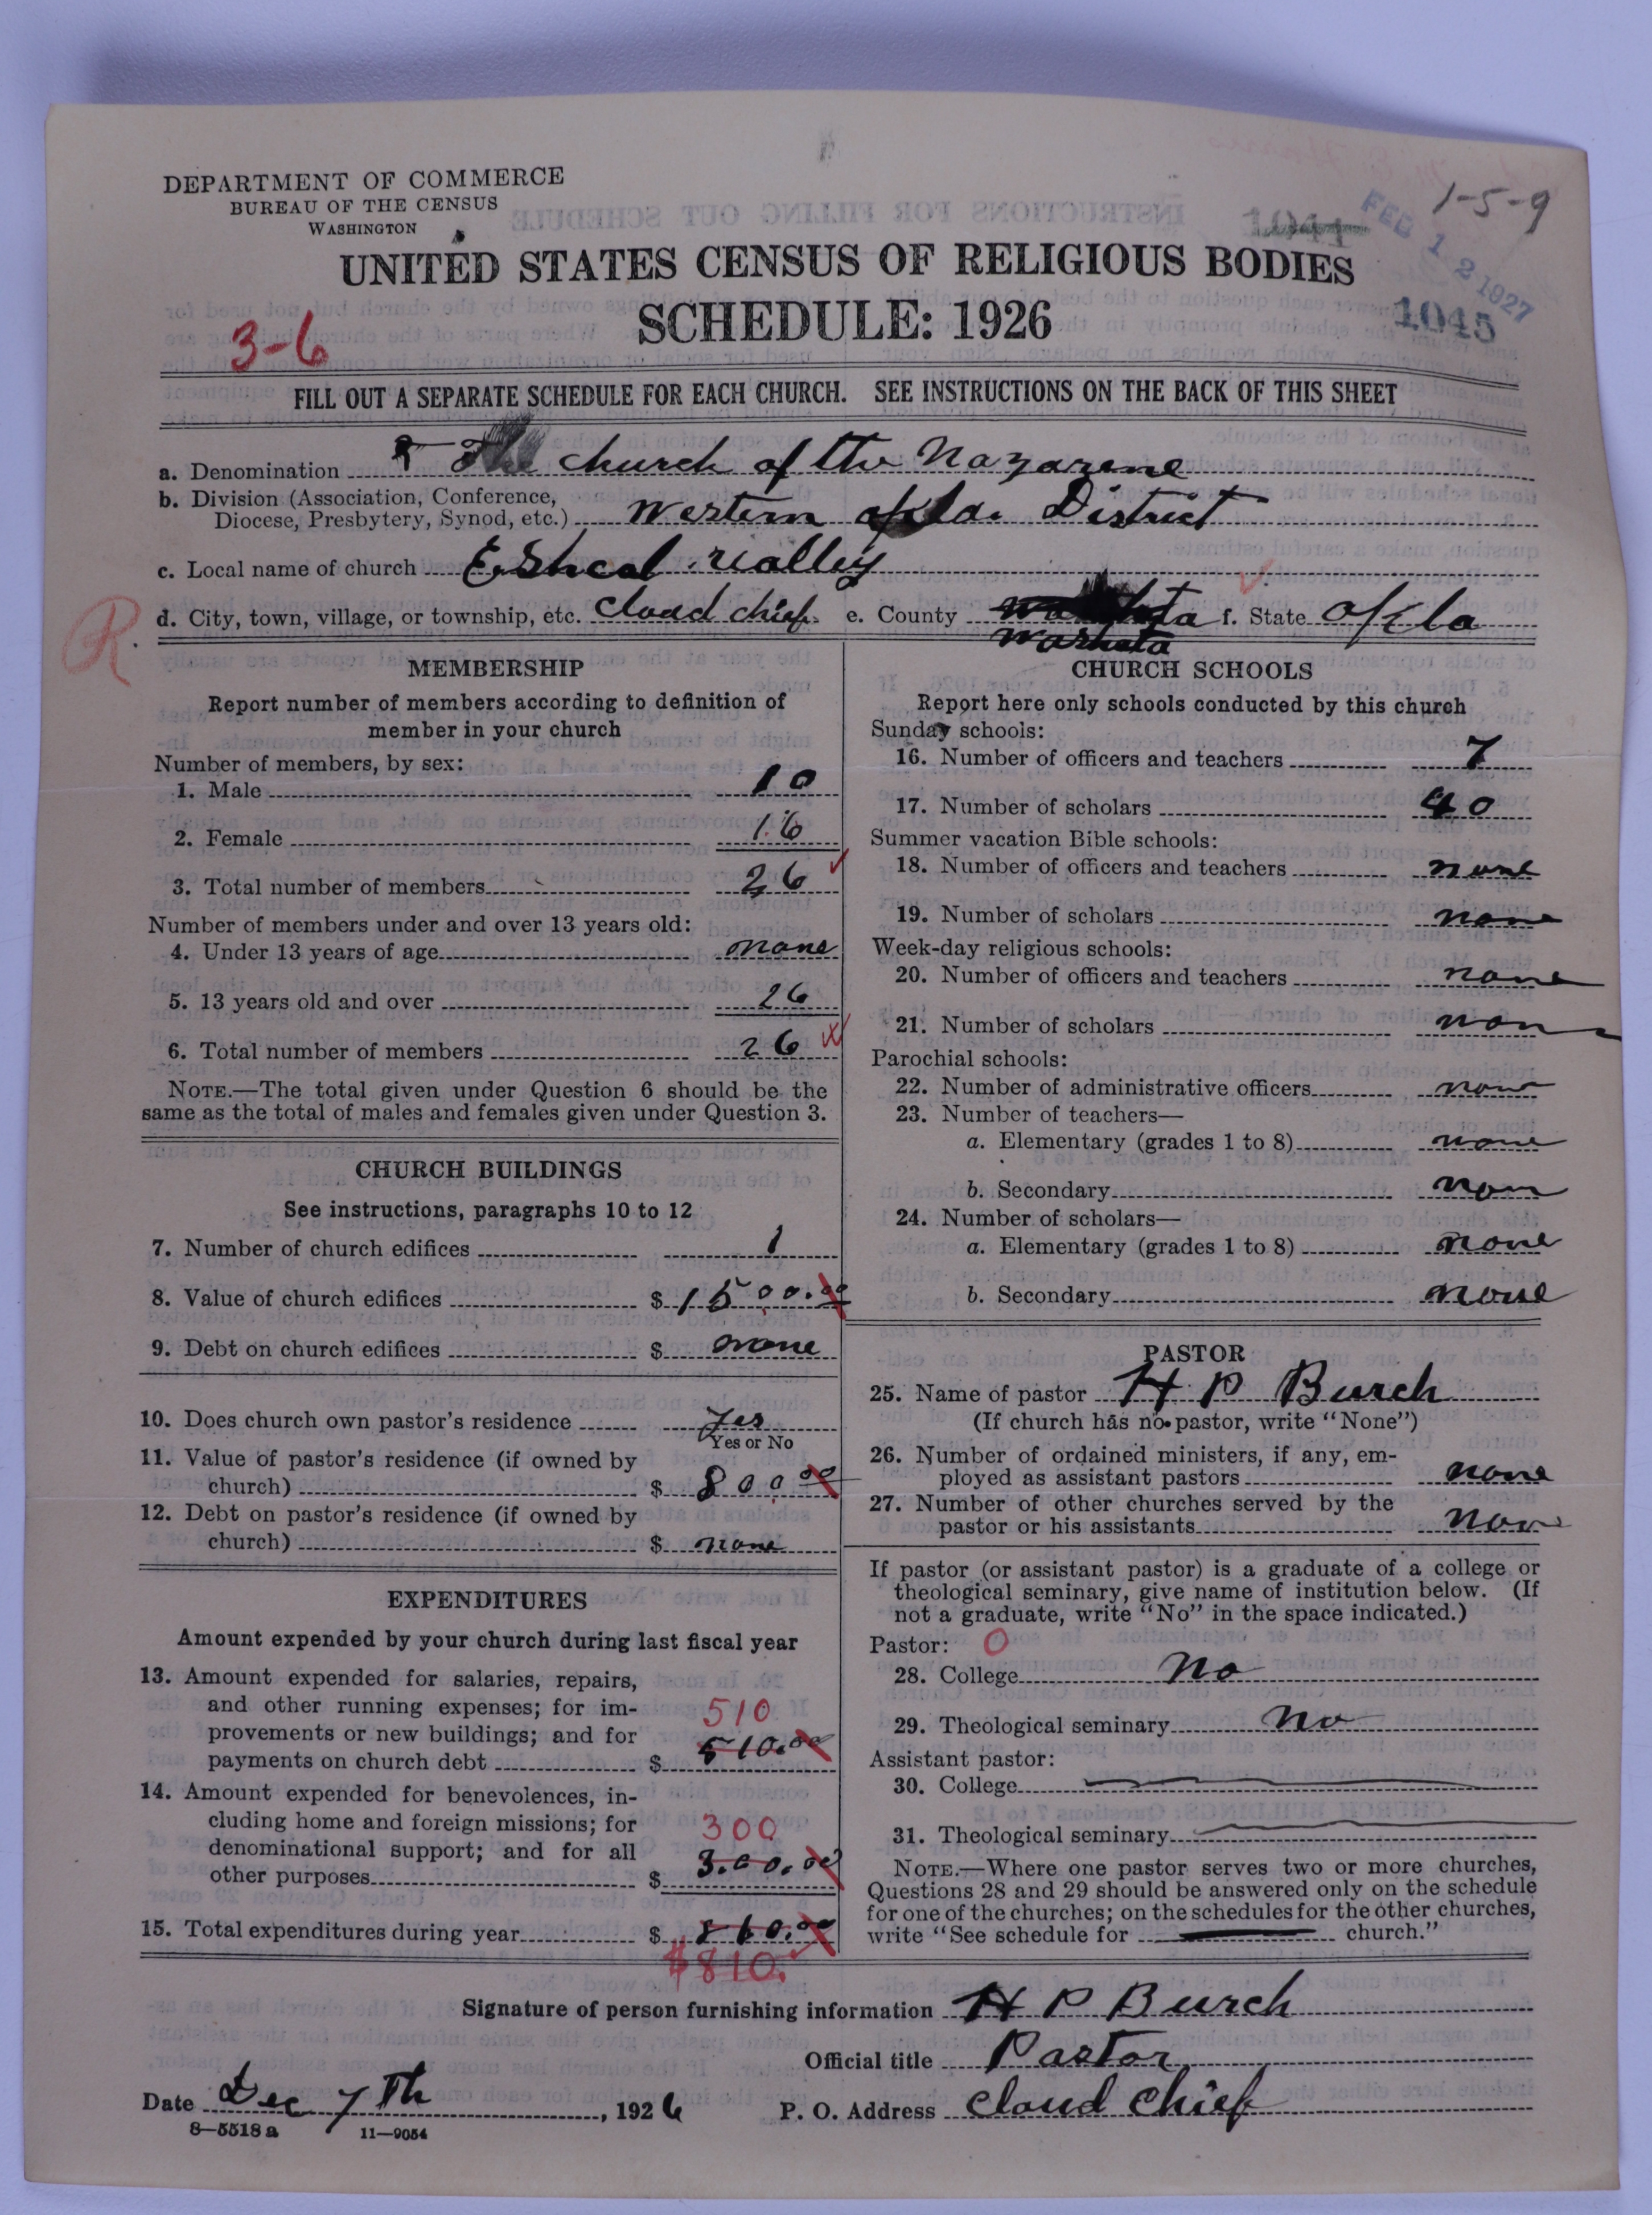 1-5-9
DEPARTMENT OF COMMERCE
BUREAU OF THE CENSUS
WASHINGTON
1044
FEB 12 1927
UNITED STATES CENSUS OF RELIGIOUS BODIES
SCHEDULE: 1926
1045
3-6
FILL OUT A SEPARATE SCHEDULE FOR EACH CHURCH. SEE INSTRUCTIONS ON THE BACK OF THIS SHEET
a. Denomination The church of the Nazarene
b. Division (Association, Conference,
Diocese, Presbytery, Synod, etc.) Western okla. District
c. Local name of church Eshcal valley
d. City, town, village, or township, etc. Cloud chief. e. County Washeta f. State Okla
R.
MEMBERSHIP
Report number of members according to definition of
member in your church
Number of members, by sex:
1. Male 10
2. Female 16
3. Total number of members 26
Number of members under and over 13 years old:
4. Under 13 years of age none
5. 13 years old and over 26
6. Total number of members 26
NOTE.—The total given under Question 6 should be the
same as the total of males and females given under Question 3.
CHURCH BUILDINGS
See instructions, paragraphs 10 to 12
7. Number of church edifices 1
8. Value of church edifices $ 1500.00
9. Debt on church edifices $ none
10. Does church own pastor's residence yes
Yes or No
11. Value of pastor's residence (if owned by
church) $ 800.00
12. Debt on pastor's residence (if owned by
church) $ none
EXPENDITURES
Amount expended by your church during last fiscal year
13. Amount expended for salaries, repairs,
and other running expenses; for im-
510
provements or new buildings; and for
payments on church debt $ 510.00
14. Amount expended for benevolences, in-
cluding home and foreign missions; for
300
denominational support; and for all
other purposes $ 300.00
15. Total expenditures during year $ 810.00
$810.
CHURCH SCHOOLS
Report here only schools conducted by this church
Sunday schools:
16. Number of officers and teachers 7
17. Number of scholars 40
Summer vacation Bible schools:
18. Number of officers and teachers none
19. Number of scholars none
Week-day religious schools:
20. Number of officers and teachers none
21. Number of scholars non
Parochial schools:
22. Number of administrative officers none
23. Number of teachers—
a. Elementary (grades 1 to 8) none
b. Secondary non
24. Number of scholars—
a. Elementary (grades 1 to 8) none
b. Secondary none
PASTOR
25. Name of pastor H P Burch
(If church has no pastor, write "None")
26. Number of ordained ministers, if any, em-
ployed as assistant pastors none
27. Number of other churches served by the
pastor or his assistants none
If pastor (or assistant pastor) is a graduate of a college or
theological seminary, give name of institution below. (If
not a graduate, write "No" in the space indicated.)
Pastor: 0
28. College No
29. Theological seminary No
Assistant pastor:
30. College
31. Theological seminary
NOTE.—Where one pastor serves two or more churches,
Questions 28 and 29 should be answered only on the schedule
for one of the churches; on the schedules for the other churches,
write "See schedule for church."
Signature of person furnishing information H P Burch
Official title Pastor
Date Dec 7th, 1926 P. O. Address Cloud Chief
8—5518 a 11—9054